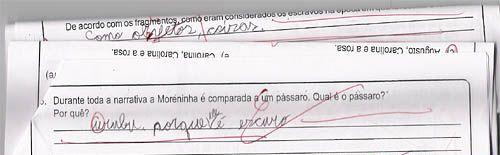 De acordo com os fragmentos, como eram considerados os escravos na época em que
Como objetos, coisas.
Augusto, Carolina e a rosa.
Durante toda a narrativa a Moreninha é comparada a um pássaro. Qual é o pássaro?
Por quê? Urubu, porque ele é escuro